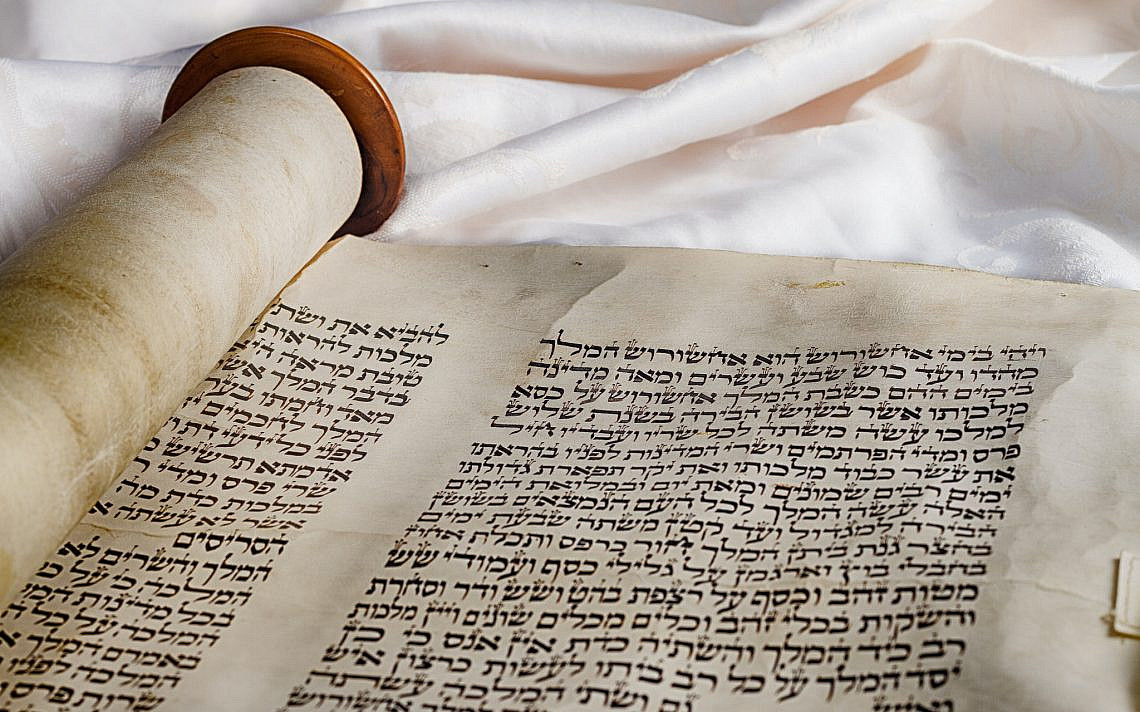 ויהי בימי אחשורוש הוא אחשורוש המלך
מהדו ועד כוש שבע ועשרים ומאה מדינה
בימים ההם כשבת המלך אחשורוש על כסא
מלכותו אשר בשושן הבירה בשנת שלוש
למלכו עשה משתה לכל שריו ועבדיו חיל
פרס ומדי הפרתמים ושרי המדינות לפניו בהראתו
את עשר כבוד מלכותו ואת יקר תפארת גדולתו
ימים רבים שמונים ומאת יום ובמלואת הימים
האלה עשה המלך לכל העם הנמצאים בשושן
הבירה למגדול ועד קטן משתה שבעת ימים
בחצר גנת ביתן המלך חור כרפס ותכלת אחוז
בחבלי בוץ וארגמן על גלילי כסף ועמודי שש
מטות זהב וכסף על רצפת בהט ושש ודר וסחרת
והשקות בכלי זהב וכלים מכלים שונים ויין מלכות
רב כיד המלך והשתיה כדת אין אנס כי כן
יסד המלך על כל רב ביתו לעשות כרצון איש
ואיש גם ושתי המלכה עשתה
אחשורוש
להביא את ושת
מלכות להראות
טובת מראה היא
בדבר המלך אש
מאד וחמתו בער
המלך לחכמים
לפני כל ידעי דת
אדמתא תרשיש
שרי פרס ומדי
במלכות כדת מה
אשר לא עשתה
הסריסים
המלך והשרים לא
המלכה כי על כל
בכל מדינות המ
המלכה על כל
באמרם המלך
המלכה לפניו
שרות פרס